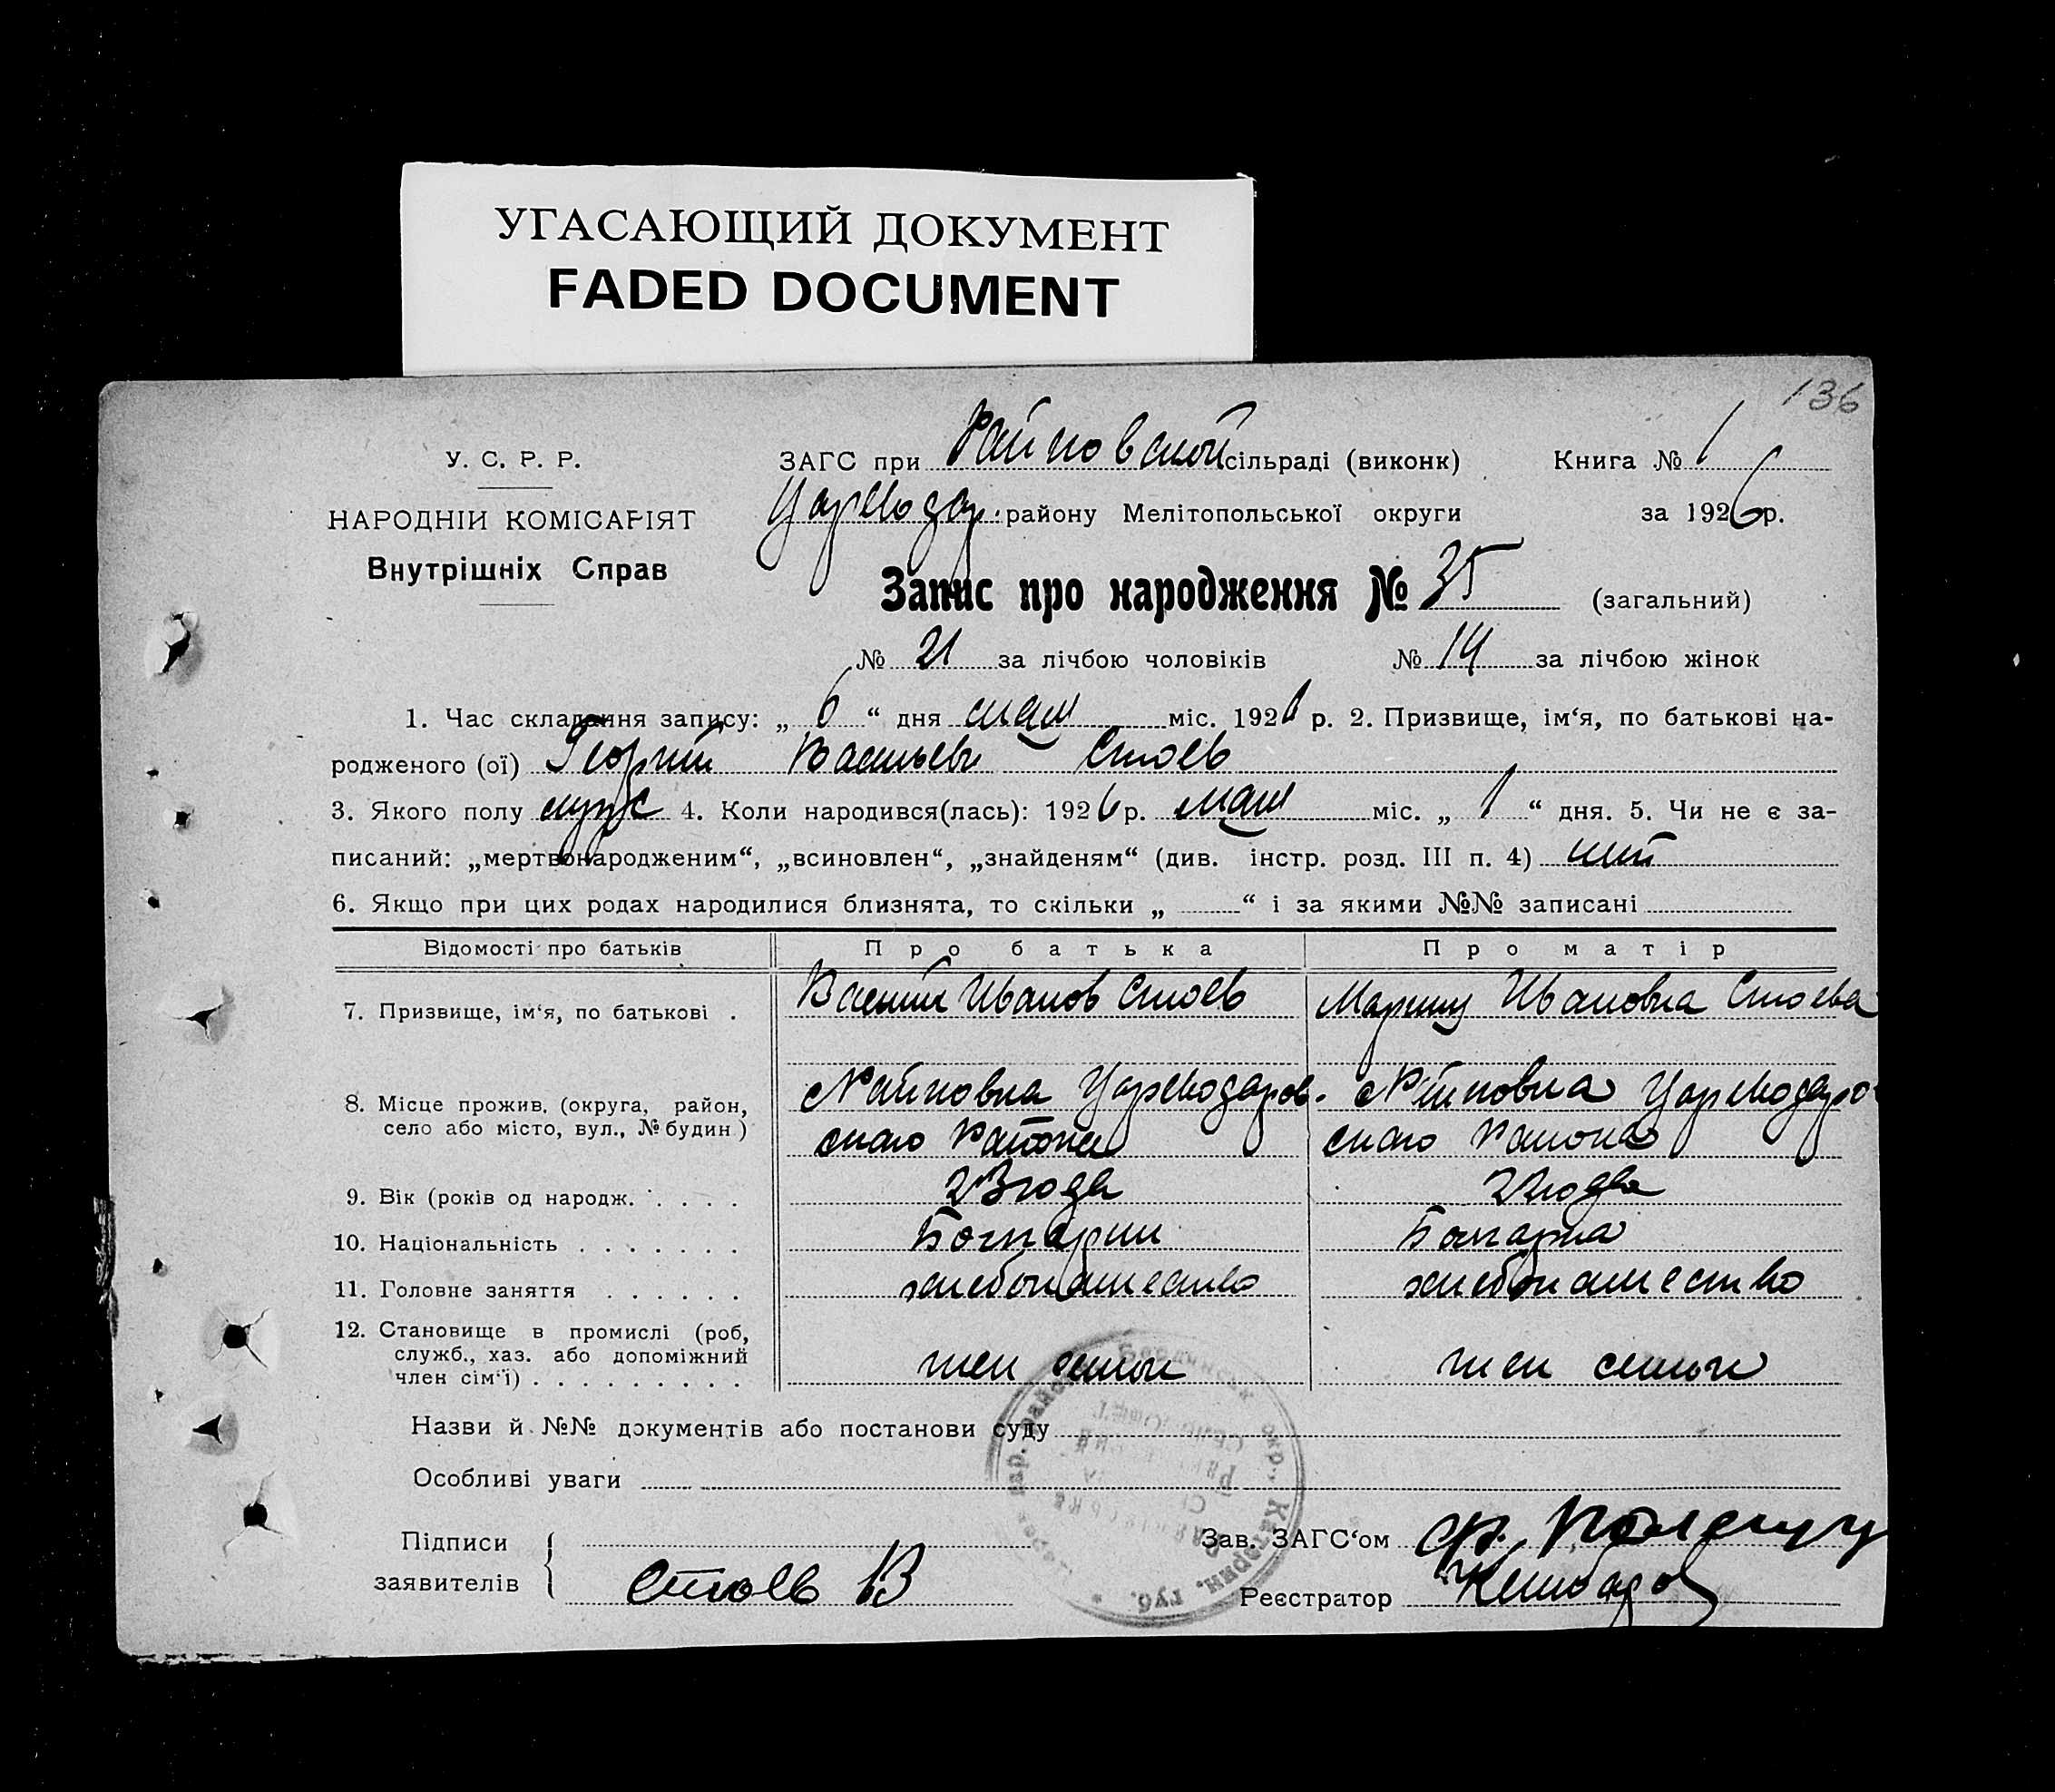 УГАСАЮЩИЙ ДОКУМЕНТ
FADED DOCUMENT
136
У. С. Р. Р.
НАРОДНІЙ КОМІСАРІЯТ
Внутрішніх Справ
ЗАГС при Райновской сільраді (виконк) Книга № 1
Цареводар. району Мелітопольської округи за 1926 р.
Запис про народження № 35 (загальний)
№ 21 за лічбою чоловіків № 14 за лічбою жінок
1. Час складання запису: „ 6 “ дня мая міс. 1926 р. 2. Призвище, ім‘я, по батькові на-
родженого (ої) Георгий Васильев Стоев
3. Якого полу мужс 4. Коли народився(лась): 1926 р. мая міс. „ 1 “ дня. 5. Чи не є за-
писаний: „мертвонародженим“, „всиновлен“, „знайденям“ (див. інстр. розд. III п. 4) нет
6. Якщо при цих родах народилися близнята, то скільки „ “ і за якими №№ записані
Відомості про батьків Про батька Про матір
7. Призвище, ім‘я, по батькові . Василий Иванов Стоев Марина Ивановна Стоева
8. Місце прожив. (округа, район, село або місто, вул., № будин) с Райновка Цареводаров- ского Района с Райновка Цареводаро ского Района
9. Вік (років од народж. . . . . 23 года 22 года
10. Національність . . . . . . . Болгарин Болгарка
11. Головне заняття . . . . . . хлебопашество хлебопашество
12. Становище в промислі (роб, служб., хаз. або допоміжний член сім‘ї) . . . . . . . . . член семьи член семьи
Назви й №№ документів або постанови суду
Особливі уваги
Підписи заявителів Стоев В
Зав. ЗАГС‘ом
Реєстратор